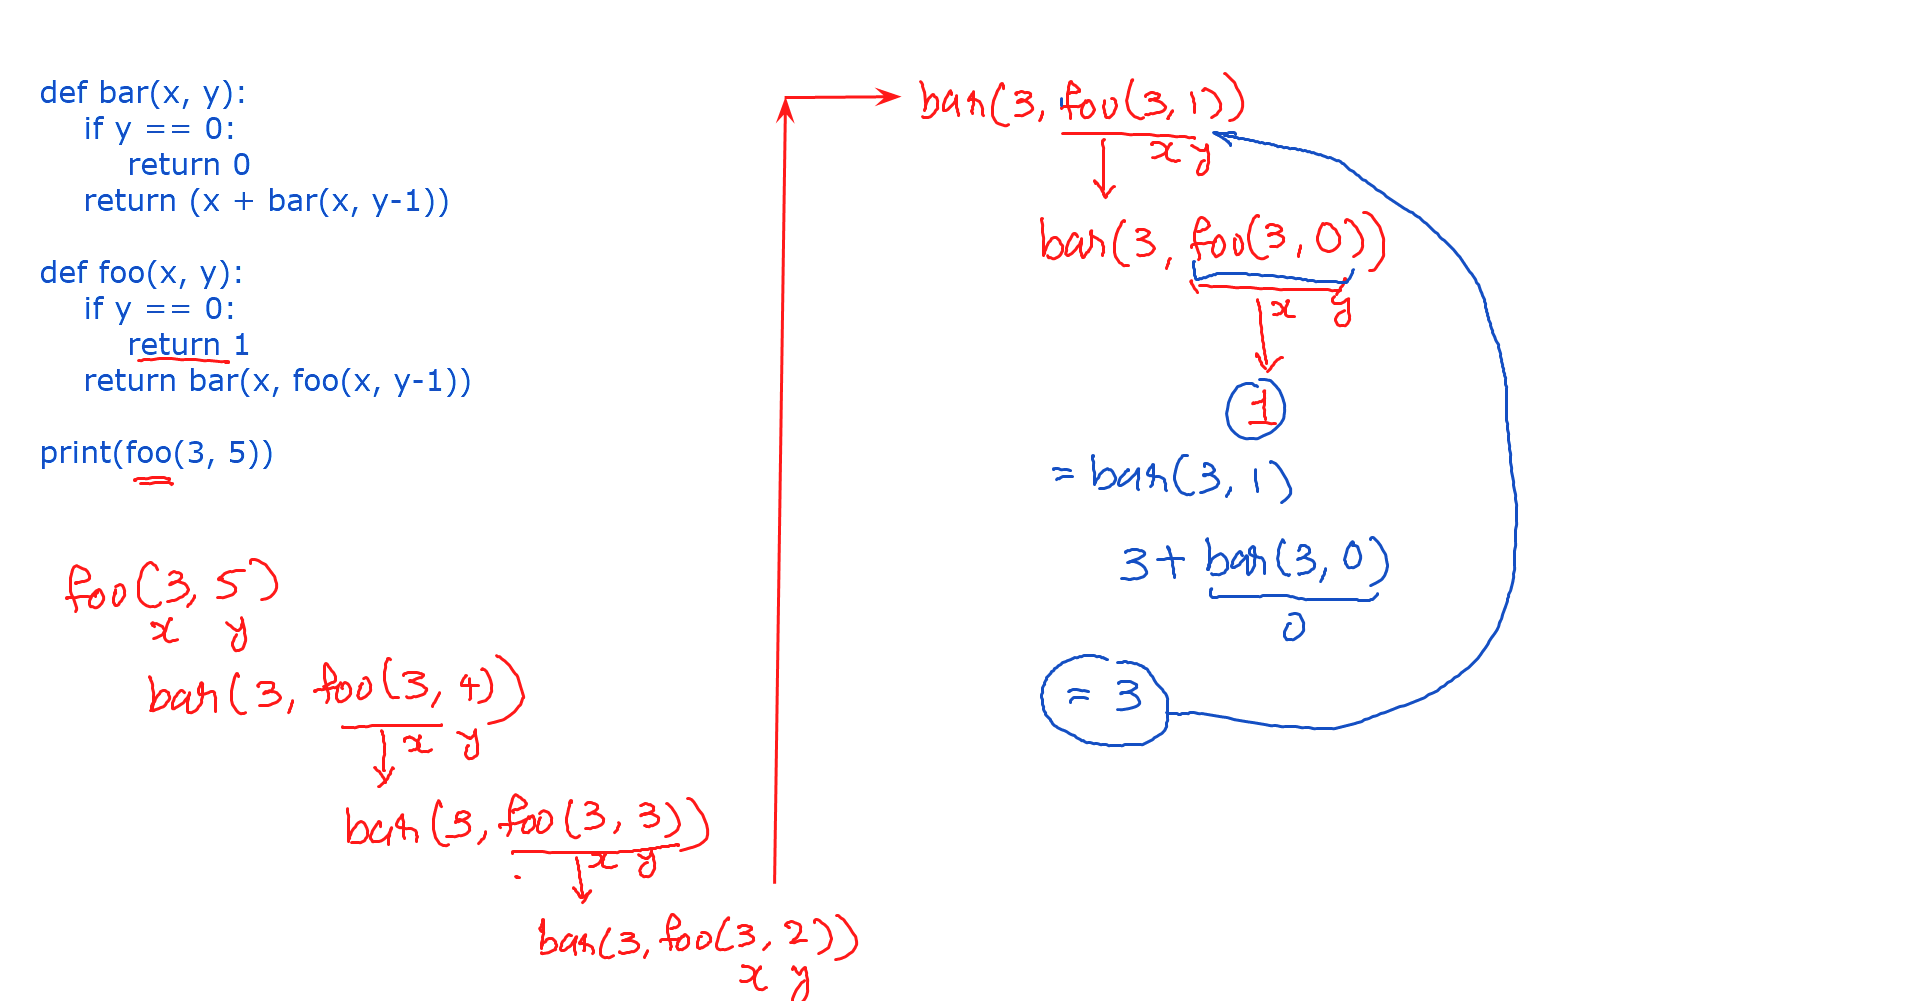 def bar(x, y):
if y == 0:
return 0
return (x + bar(x, y-1))
def foo(x, y):
if y == 0:
return 1
return bar(x, foo(x, y-1))
print(foo(3, 5))
foo(3, 5)
x y
bar(3, foo(3, 4))
x y
bar(3, foo(3, 3))
x y
bar(3, foo(3, 2))
x y
bar(3, foo(3, 1))
x y
bar(3, foo(3, 0))
x y
1
= bar(3, 1)
3 + bar(3, 0)
0
= 3